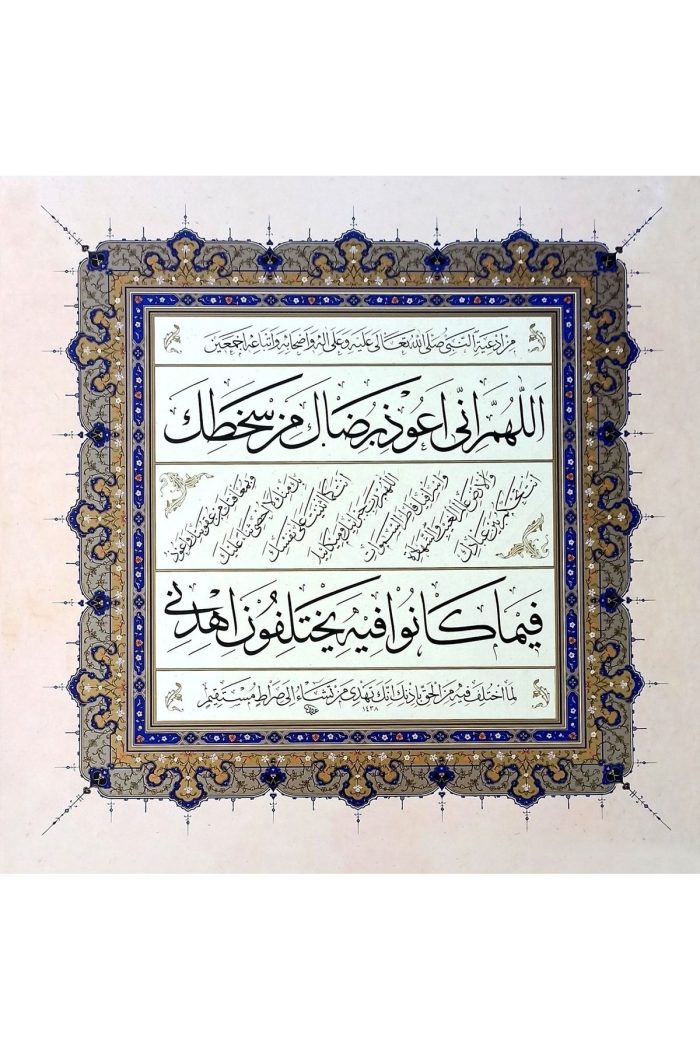 من ادعية النبي صلى الله تعالى عليه وعلى اله واصحابه واتباعه اجمعين
اَللّٰهُمَّ اِنّى اَعُوذُ بِرِضَاكَ مِنْ سَخَطِكَ
وبمعافاتك من عقوبتك واعوذ
بك منك لا احصى ثناء عليك
انت كما اثنيت على نفسك
اللهم رب جبرائيل وميكائيل
واسرافيل فاطر السموات
والارض عالم الغيب والشهادة
انت تحكم بين عبادك
فِيمَا كَانُوا فِيهِ يَخْتَلِفُونَ اهْدِنِى
لما اختلف فيه من الحق باذنك انك تهدى من تشاء الى صراط مستقيم
١٤٣٨